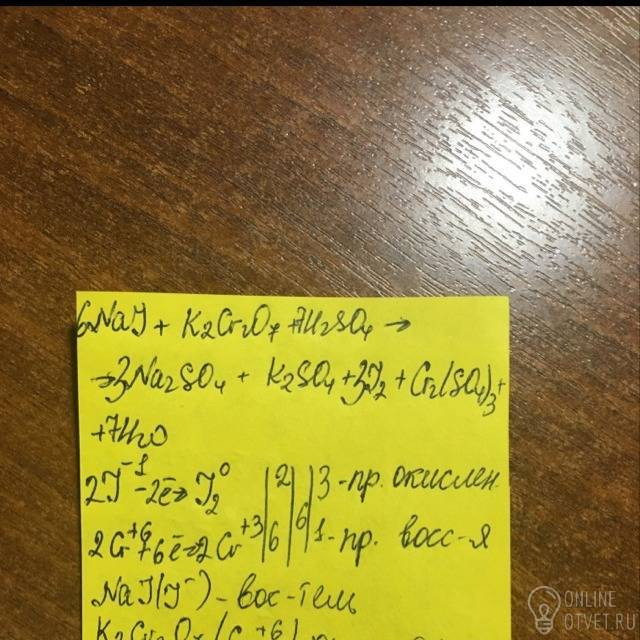 6NaJ + K2Cr2O7 + 7H2SO4 →
→ 3Na2SO4 + K2SO4 + 3J2 + Cr2(SO4)3 +
+ 7H2O
2J⁻¹ - 2ē → J2⁰ | 2 | | 3 - пр. окислен
2Cr⁺⁶ + 6ē → 2Cr⁺³ | 6 | 6 | 1 - пр. восс-я
NaJ(J⁻) - вос-тель
K2Cr2O7 (Cr⁺⁶)
ONLINE
OTVET.RU